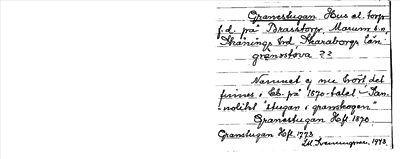 Granestugan. Hus el. torp
f.d. på Brasstorp, Marum s:n,
Skånings hd, Skaraborgs län
granostova ??
Namnet ej nu hört det
finnes i Cb. på 1870-talet - San-
nolikt "stugan i granskogen"
Granestugan Hfl. 1870.
Granstugan Hfl. 1773
1943.